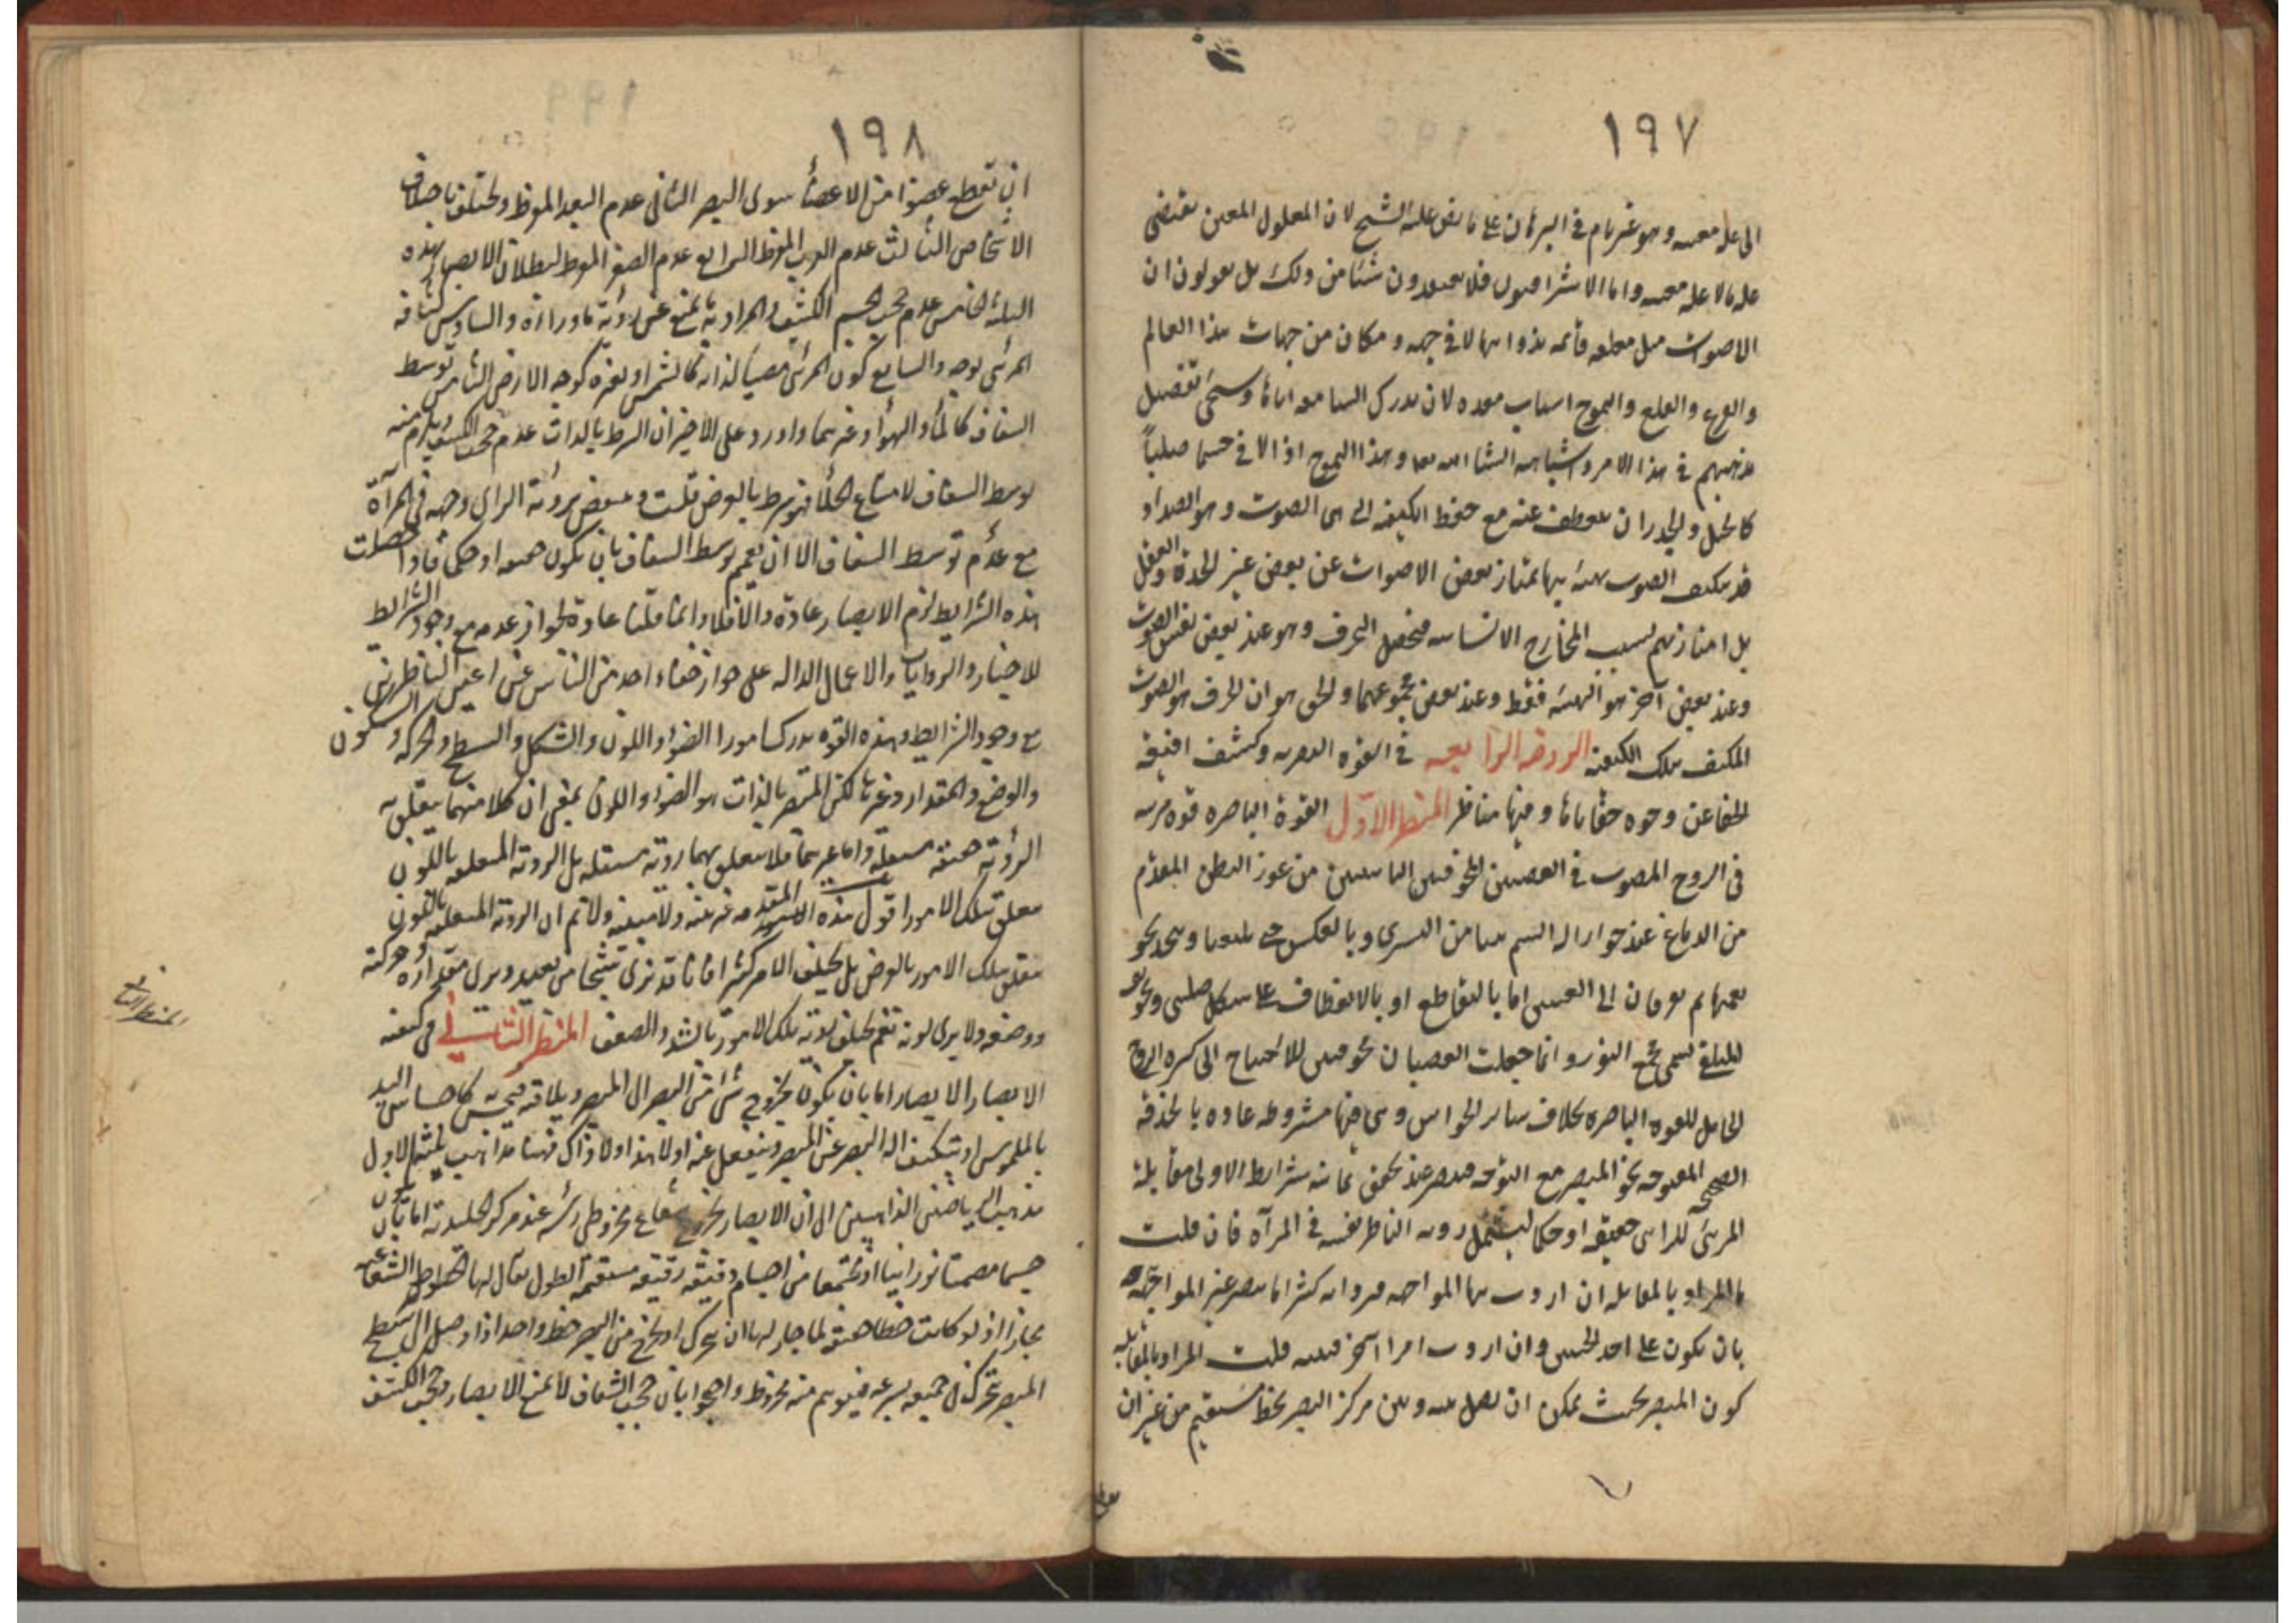 ١٩٧
الى علة معينه وهو غير تام فى البرهان على ما نص عليه الشيخ لان المعلول المعين يقتضى
علة ما لا علة معينه واما الاشراقيون فلا يعتقدون شيئا من ذلك بل يقولون ان
الاصوات مثل معلقه قائمه بذواتها لا فى جهه ومكان من جهات هذا العالم
والقرع والقلع والتموج اسباب معده لان يدرك السامعه اياها وسيجئ تفصيل
مذهبهم فى هذا الامر واشباهه انشا الله تعا وهذا التموج اذا لاقى جسما صلباً
كالجبل والجدران ينعطف عنه مع حفظ الكيفيه التى هى الصوت وهو الصداء و
قد يكيف الصوت بهيئة بها يمتاز بعض الاصوات عن بعض غير الحدة والثقل
بل امتازتهم بسبب المخارج الانسانيه فيحصل الحرف وهو عند بعض نفس الصوت
وعند بعض آخر هو الهيئه فقط وعند بعض مجموعهما والحق هو ان الحرف هو الصوت
المكيف بتلك الكيفيه الروضه الرابعه فى القوه البصريه وكشف اقنعة
الخفا عن وجوه خفاياها وفيها مناظر المنظر الاول القوة الباصره قوه مرتبه
فى الروح المصبوب فى العصبتين المجوفتين النابتتين من غور البطن المقدم
من الدماغ عند جوار الزائدتين يتيامن اليسرى وبالعكس حتى يلتقيا ويتحد تجو
يفهما ثم يتفرقان الى العينين اما بالتقاطع او بالانعطاف على شكل صليبى وتجويف
الملتقى يسمى مجمع النور وانما جعلت العصبتان مجوفتين للاحتياج الى كثره الروح
الحامل للقوه الباصره بخلاف سائر الحواس وهى فيها مشروطه عاده بالحدقة
الصحيحه المتوجه نحو المبصر مع التوجه فتبصر عند تحقق ثمانيه شرائط الاولى مقابلة
المرئى للرائى حقيقه او حكما ليشتمل رويه الناظر نفسه فى المرآه فان قلت
ما المراد بالمقابله ان اردت بها المواجهه فيرد انه كثيرا ما يبصر غير المواجهه
بان يكون على احد الجنبين وان اردت امرا آخر فبينه قلت المراد بالمقابله
كون المبصر بحيث يمكن ان يصل بينه وبين مركز البصر بخط مستقيم من غير ان
١٩٨
ان تقطع عضوا من الاعضأ سوى البصر الثانى عدم البعد المفرط ويختلف باختلاف
الاشخاص الثالث عدم القرب المفرط الرابع عدم الصغر المفرط لبطلان الابصار بهذه
الثلثة الخامس عدم حجب الجسم الكثيف والمراد به ما يمنع عن رؤية ما وراءه والسادس كثافه
المرئى بوجه والسابع كون المرئى مضيئا لذاته كالشمس او بغيره كوجه الارض الثامن توسط
الشفاف كالمأ والهوأ وغيرهما واورد على الاخير ان الشرط بالذات عدم حجب الكثيف ويلزم منه
توسط الشفاف لامتناع الخلأ فهو شرط بالعرض قلت وينتقض برؤية الرائى وجهه فى المرآة
مع عدم توسط الشفاف الا ان يعمم توسط الشفاف بان يكون حقيقه او حكما فاذا حصلت
هذه الشرايط لزم الابصار عادة والا فلا وانما قلنا عادة لجواز عدمه مع وجود الشرايط
للاخبار والروايات والاعمال الداله على جواز خفاء احد من الناس عن اعين الناظرين
مع وجود الشرايط وهذه القوه يدرك امورا الضوء واللون والشكل والسطح والحركة والسكون
والوضع والمقدار وغيرها لكن المبصر بالذات هو الضوء واللون بمعنى ان كلا منهما يتعلق به
الرؤية حقيقة مستقلة واما غيرهما فلا يتعلق بهما رؤية مستقله بل الروية المتعلقه باللون
يتعلق بتلك الامور اقول هذه المقدمه غير بينه ولا مبينه ولا نم ان الروية المتعلقه باللون
يتعلق بتلك الامور بالعرض بل يختلف الامر كثيرا فانا قد نرى شبحا من بعيد ونرى مقداره وحركته
ووضعه ولا يرى لونه نعم يختلف رؤية تلك الامور بالشد والضعف المنظر الثانى فى كيفيه
الابصار الابصار اما بان يكون بخروج شئ من البصر الى المبصر ويلاقيه فيحس كاحساس اليد
بالملموس او يتكيف اله البصر عن المبصر وينفعل عنه اولا هذا ولا ذاك فهنا مذاهب ثلثه الاول
مذهب الرياضيين الذاهبين الى ان الابصار بخروج شعاع مخروطى رأسه عند مركز الجليديه اما بان يكون
جسما مصمتا نورانيا او مجتمعا من اجسام دقيقه رقيقه مستقيمه الطول يقال لها الخطوط الشعاعيه
مجازا اذ لو كانت خطا حقيقة لما جاز لها ان يتحرك او يخرج من البصر خط واحد اذا وصل الى سطح
المبصر تحرك فى جميعه بسرعه فيتوهم منه مخروط واجابوا بان حجب الشفاف لا يمنع الابصار وحجب الكثيف